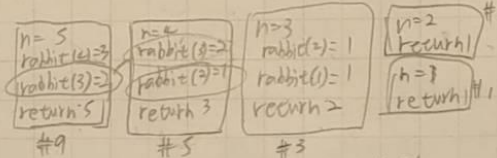 n= 5
rabbit(4)=3
rabbit(3)=2
return 5
#9
n=4
rabbit(3)=2
rabbit(2)=1
return 3
#5
n=3
rabbit(2)= 1
rabbit(1)= 1
return 2
#3
n=2
return 1
#
n=1
return 1
#1